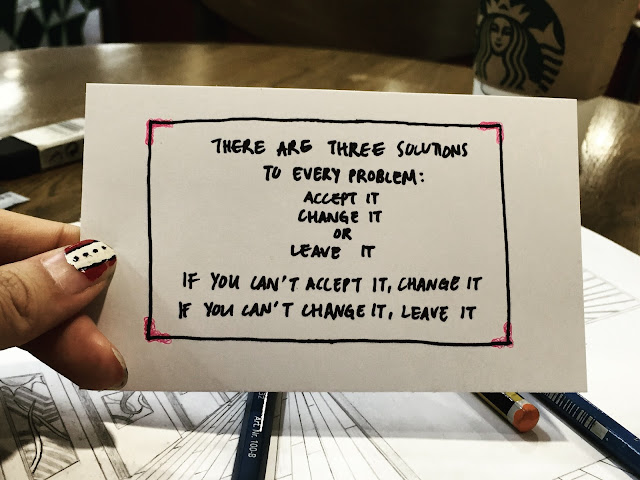 THERE ARE THREE SOLUTIONS
TO EVERY PROBLEM:
ACCEPT IT
CHANGE IT
OR
LEAVE IT
IF YOU CAN'T ACCEPT IT, CHANGE IT
IF YOU CAN'T CHANGE IT, LEAVE IT
Art. Nr. 100-B